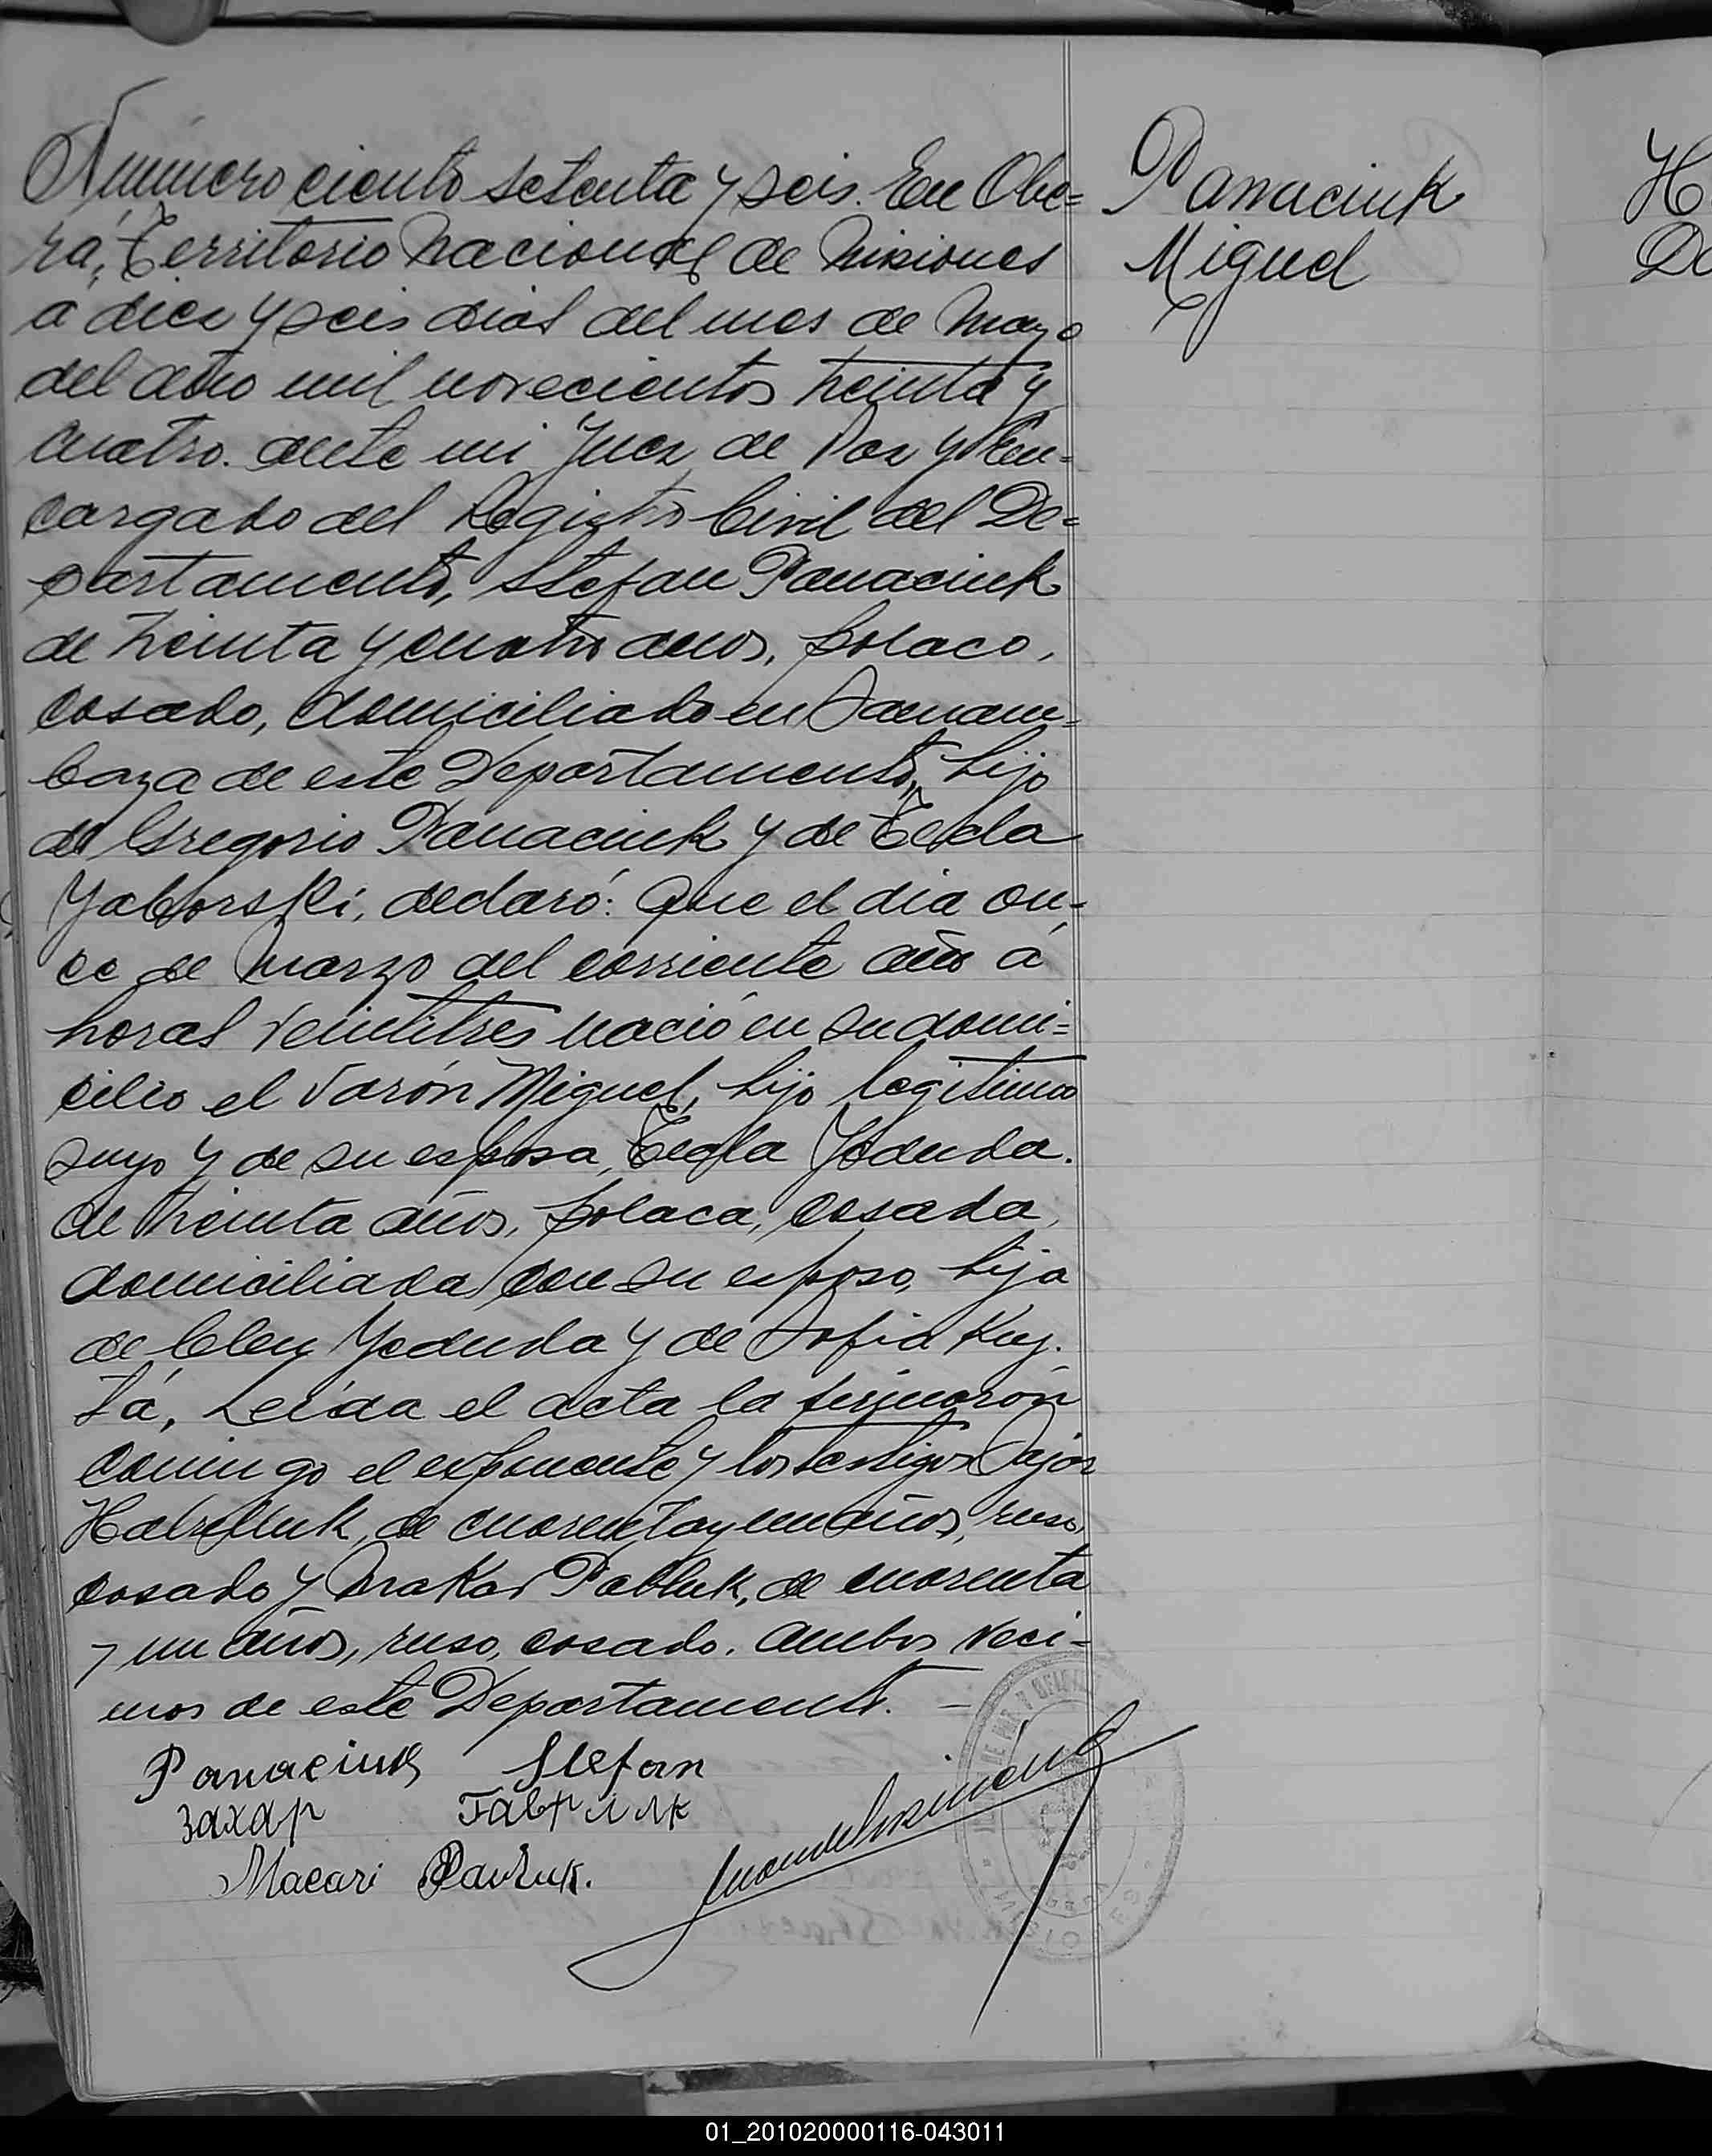 Número ciento setenta y seis. En Obe=
rá, Territorio Nacional de Misiones
a diez y seis dias del mes de Mayo
del año mil novecientos treinta y
cuatro. ante mi Juez de Paz y En-
cargado del Registro Civil del De=
partamento, Stefan Panaciuk
de treinta y cuatro años, polaco,
casado, domiciliado en Samam-
baya de este Departamento, hijo
de Gregorio Panaciuk y de Tecla
Yaborski, declaró: Que el dia on-
ce de Marzo del corriente año a
horas veintitres nació en su domi=
cilio el varón Miguel, hijo legitimo
suyo y de su esposa, Tegla Yeduda.
de treinta años, polaca, casada,
domiciliada con su esposo, hija
de Yeduda y de Sofia
Leída el acta la firmaron
conmigo el exponente y los testigos Sajar
de cuarenta y un años, ruso,
casado y Makar Pabluk, de cuarenta
y un años, ruso, casado. Ambos veci-
nos de este Departamento. —
Panaciuk Stefan
Захар Гаврилюк
Macari Pavluk.
Panaciuk
Miguel
H
De
MISIONES
01_201020000116-043011